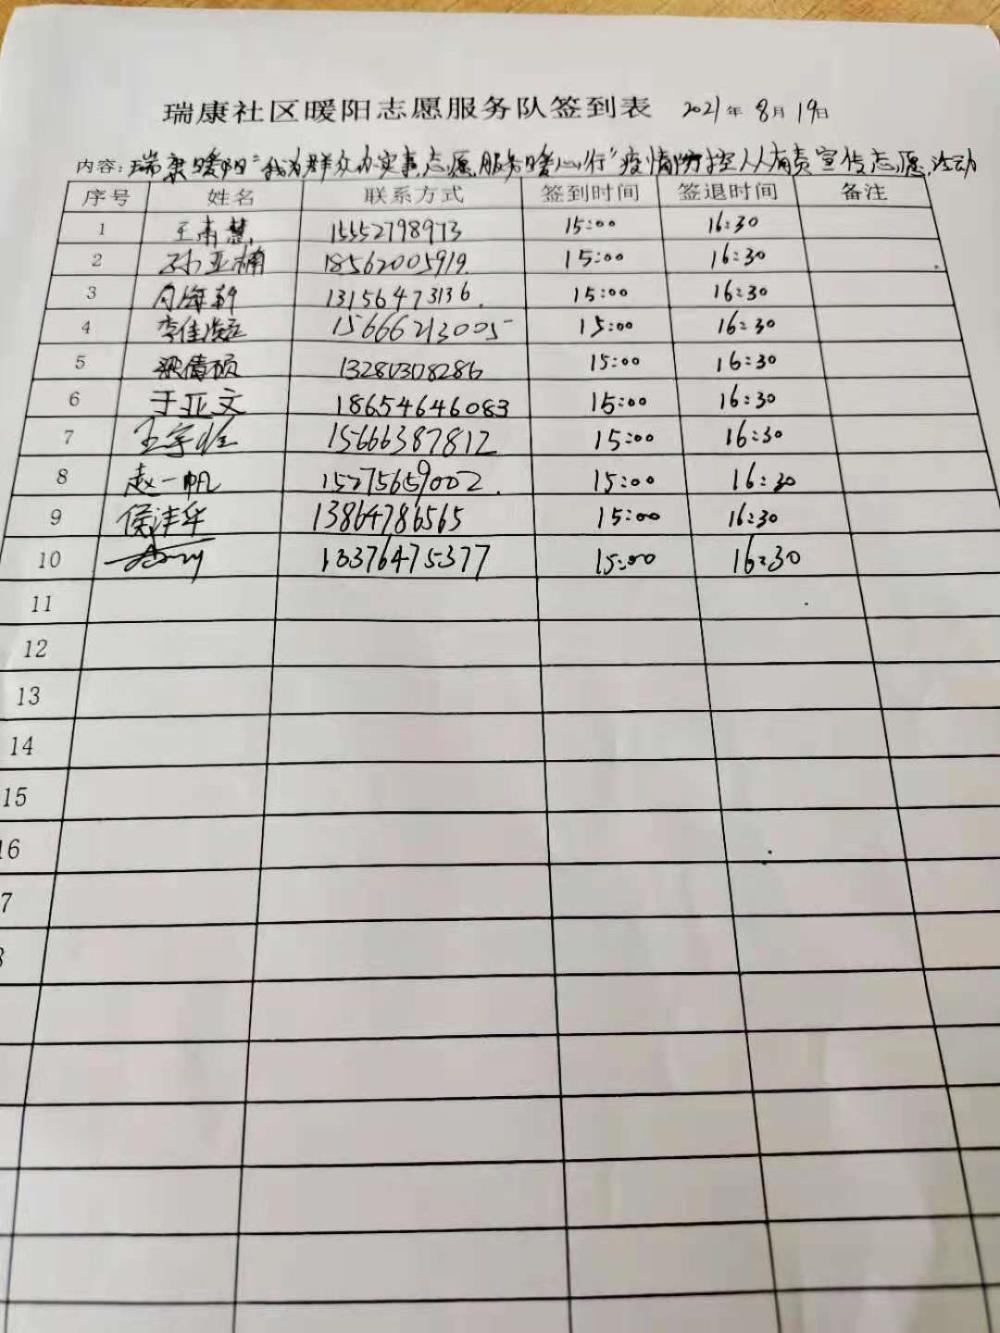 瑞康社区暖阳志愿服务队签到表 2021年8月19日
内容:瑞康暖阳"我为群众办实事志愿服务暖心行"疫情防控人人有责宣传志愿活动
序号 姓名 联系方式 签到时间 签退时间 备注
1 王甫慧 15552798973 15:00 16:30
2 孙亚楠 18562005919 15:00 16:30
3 13156473136 15:00 16:30
4 李佳 15666213005 15:00 16:30
5 梁倩硕 13280308286 15:00 16:30
6 于亚文 18654646083 15:00 16:30
7 王宇 15666387812 15:00 16:30
8 赵一帆 15275659002 15:00 16:30
9 侯沣华 13864786565 15:00 16:30
10 13376475377 15:00 16:30
11
12
13
14
15
16
7